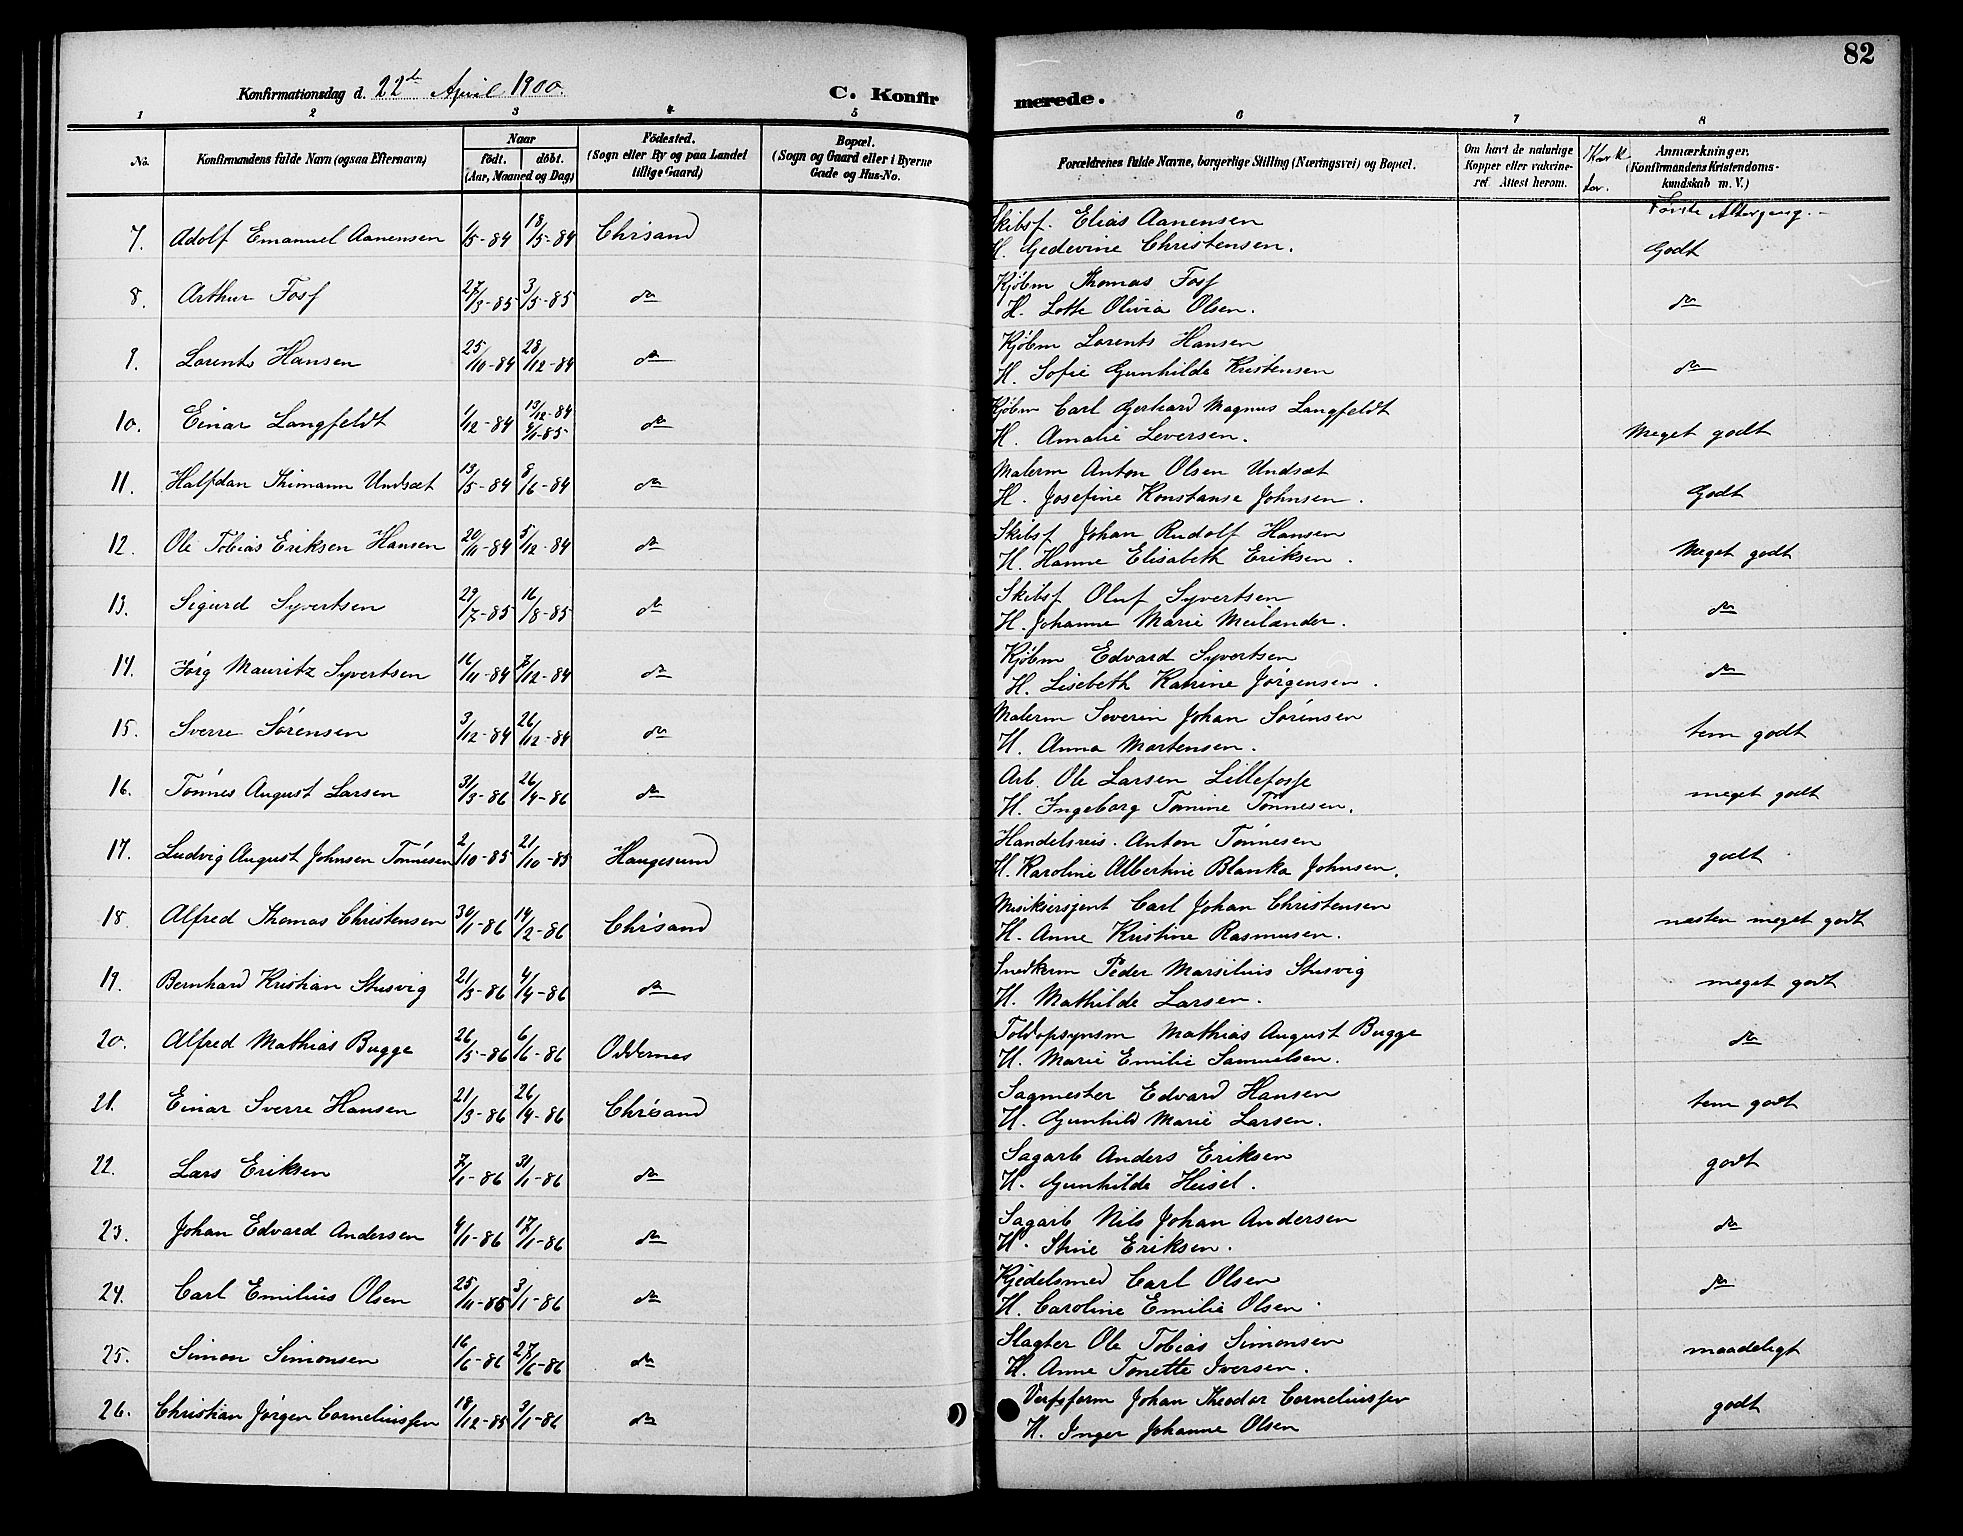 82
Konfirmationsdag d. 22de April 1900.
C. Konfirmerede.
1 2 3 4 5 6 7 8
No. Konfirmandens fulde Navn (ogsaa Efternavn) Naar födt. döbt. (Aar, Maaned og Dag) Födested. (Sogn eller By og paa Landet tillige Gaard) Bopæl. (Sogn og Gaard eller i Byerne Gade og Hus-No. Forældrenes fulde Navne, borgerlige Stilling (Næringsvei) og Bopæl. Om havt de naturlige Kopper eller vakcineret. Attest herom. Anmærkninger. (Konfirmandens Kristendomskundskab m. V.)
Første Altergang.
7. Adolf Emanuel Aanensen 1/5-84 18/5-84 Chrisand Skibsf. Elias Aanensen
H. Gedevine Christensen. Godt
8. Arthur Fosf 27/3-85 3/5-85 do Kjøbm Thomas Fosf
H. Lotte Olivia Olsen. do
9. Lorents Hansen 25/10-84 28/12-84 do Kjøbm Lorents Hansen
H. Sofie Gunhilde Kristensen do
10. Einar Langfeldt 1/12-84 13/12-84 4/1-85 do Kjøbm Carl Gerhard Magnus Langfeldt
H. Amalie Leversen. Meget godt
11. Halfdan Thimann Undsæt 13/5-84 8/6-84 do Malerm Anton Olsen Undsæt
H. Josefine Konstanse Johnsen. Godt
12. Ole Tobias Eriksen Hansen 20/11-84 5/12-84 do Skibsf Johan Rudolf Hansen
H. Hanne Elisabeth Eriksen. Meget godt
13. Sigurd Syvertsen 29/7-85 16/8-85 do Skibsf Oluf Syvertsen
H. Johanne Marie Meilænder. do
14. Jørg Mauritz Syvertsen 16/11-84 7/12-84 do Kjøbm Edvard Syvertsen
H. Lisebeth Katrine Jørgensen. do
15. Sverre Sørensen 3/12-84 26/12-84 do Malerm Severin Johan Sørensen
H. Anna Mortensen. tem godt
16. Tønnes August Larsen 31/3-86 26/4-86 do Arb. Ole Larsen Lillefosse
H. Ingeborg Tomine Tønnesen. meget godt
17. Ludvig August Johnsen Tønnesen 2/10-85 21/10-85 Haugesund Handelsreis. Anton Tønnesen
H. Karoline Albertine Blanka Johnsen. godt
18. Alfred Thomas Christensen 30/1-86 14/2-86 Chrisand Musiksersjent Carl Johan Christensen
H. Anne Kristine Rasmusen. næsten meget godt
19. Bernhard Kristian Stusvig 21/3-86 4/4-86 do Snedkerm Peder Marsilius Stusvig
H. Mathilde Larsen. meget godt
20. Alfred Mathias Bugge 26/5-86 6/6-86 Oddernes Toldopsynsm Mathias August Bugge
H. Marie Emilie Samuelsen. do
21. Einar Sverre Hansen 21/3-86 26/4-86 Chrisand Sagmester Edvard Hansen
H. Gunhild Marie Larsen. tem godt
22. Lars Eriksen 7/1-86 31/1-86 do Sagarb Anders Eriksen
H. Gunhilde Heisel. godt
23. Johan Edvard Andersen 4/1-86 17/1-86 do Sagarb Nils Johan Andersen
H. Stine Eriksen. do
24. Carl Emilius Olsen 25/11-85 3/1-86 do Kjedelsmed Carl Olsen
H. Caroline Emilie Olsen. do
25. Simon Simonsen 16/6-86 27/6-86 do Slagter Ole Tobias Simonsen
H. Anne Tonette Iversen. maadeligt
26. Christian Jørgen Corneliussen 18/12-85 3/1-86 do Verfsform Johan Theodor Corneliussen
H. Inger Johanne Olsen godt